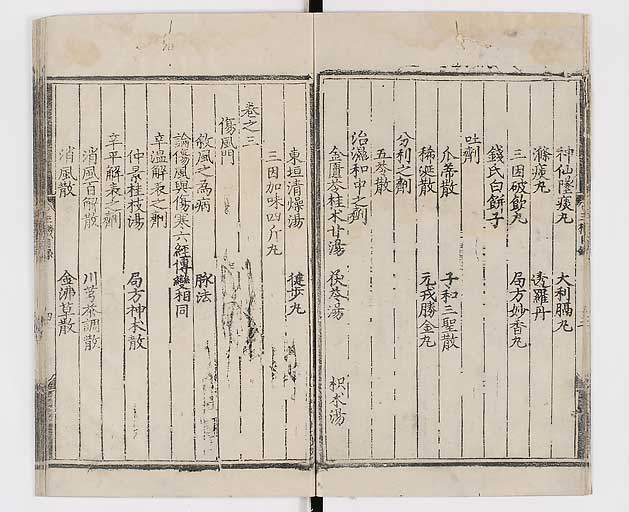 神仙墜痰丸 大利膈丸
滌痰丸 透羅丹
三因破飲丸 局方妙香丸
錢氏白餅子
吐劑
瓜蒂散 子和三聖散
稀涎散 元戎勝金丸
分利之劑
五苓散
治濕和中之劑
金匱苓桂朮甘湯 茯苓湯 枳朮湯
東垣清燥湯 健步丸
三因加味四斤丸
卷之三
傷風門
敘風之爲病 脉法
論傷風與傷寒六經傳變相同
辛溫解表之劑
仲景桂枝湯 局方神朮散
辛平解表之劑
消風百解散 川芎茶調散
消風散 金沸草散